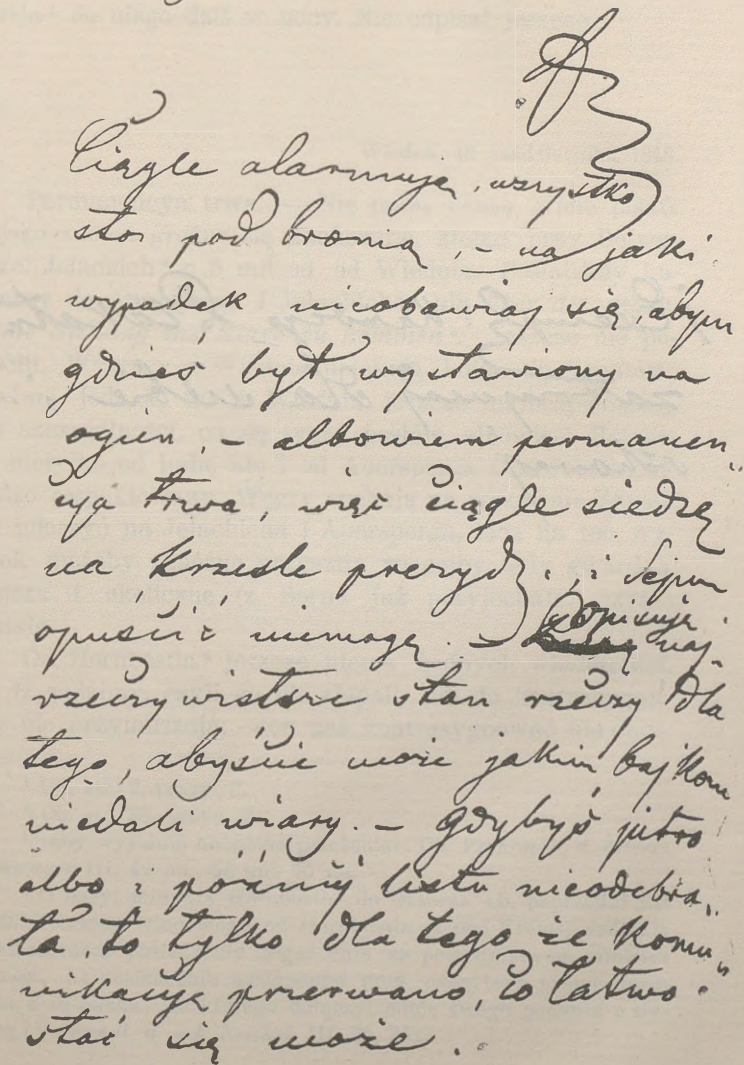 Ciągle alarmują, wszystko
stoi pod bronią, – na jaki
wypadek nieobawiaj się, abym
gdzieś był wystawiony na
ogień, – albowiem permanen„
cyja trwa, więc ciągle siedzę
na krześle prezyd., i Sejmu
opuścić niemogę. – Opisuję naj„
rzeczywistsze stan rzeczy dla
tego, abyście może jakim bajkom
niedali wiary. – gdybyś jutro
albo i późnij listu nieodebra„
ła, to tylko dla tego że komu„
nikacyją przerwano, co łatwo
stać się może.